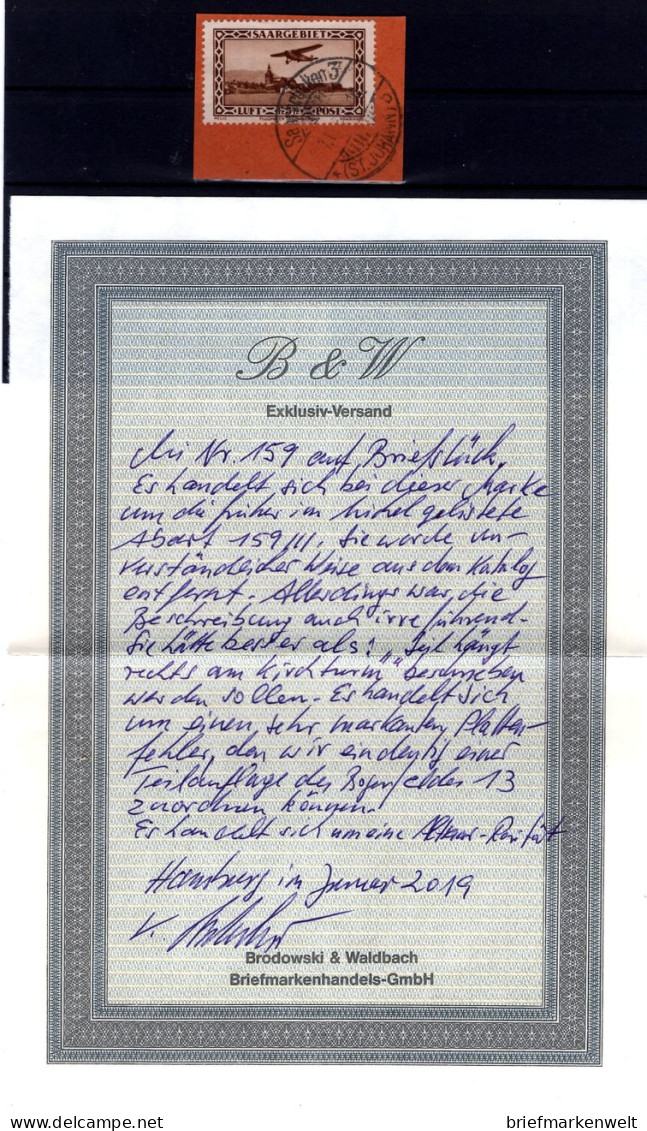 SAARGEBIET
LUFT POST
Saarbrücken 3
(ST. JOHANN)
B & W
Exklusiv-Versand
Mi Nr. 159 auf Briefstück.
Es handelt sich bei dieser Marke
um die früher im Michel gelistete
Abart 159 III. Sie wurde un-
verständlicher Weise aus dem Katalog
entfernt. Allerdings war die
Beschreibung auch irreführend.
Sie hätte besser als: "Seil hängt
rechts am Kirchturm" beschrieben
werden sollen. Es handelt sich
um einen sehr markanten Platten-
fehler, den wir eindeutig einer
Teilauflage des Bogenfeldes 13
zuordnen können.
Es handelt sich um eine Altsaar-Rarität
Hamburg im Januar 2019
Brodowski & Waldbach
Briefmarkenhandels-GmbH
DELCAMPE.NET
briefmarkenwelt